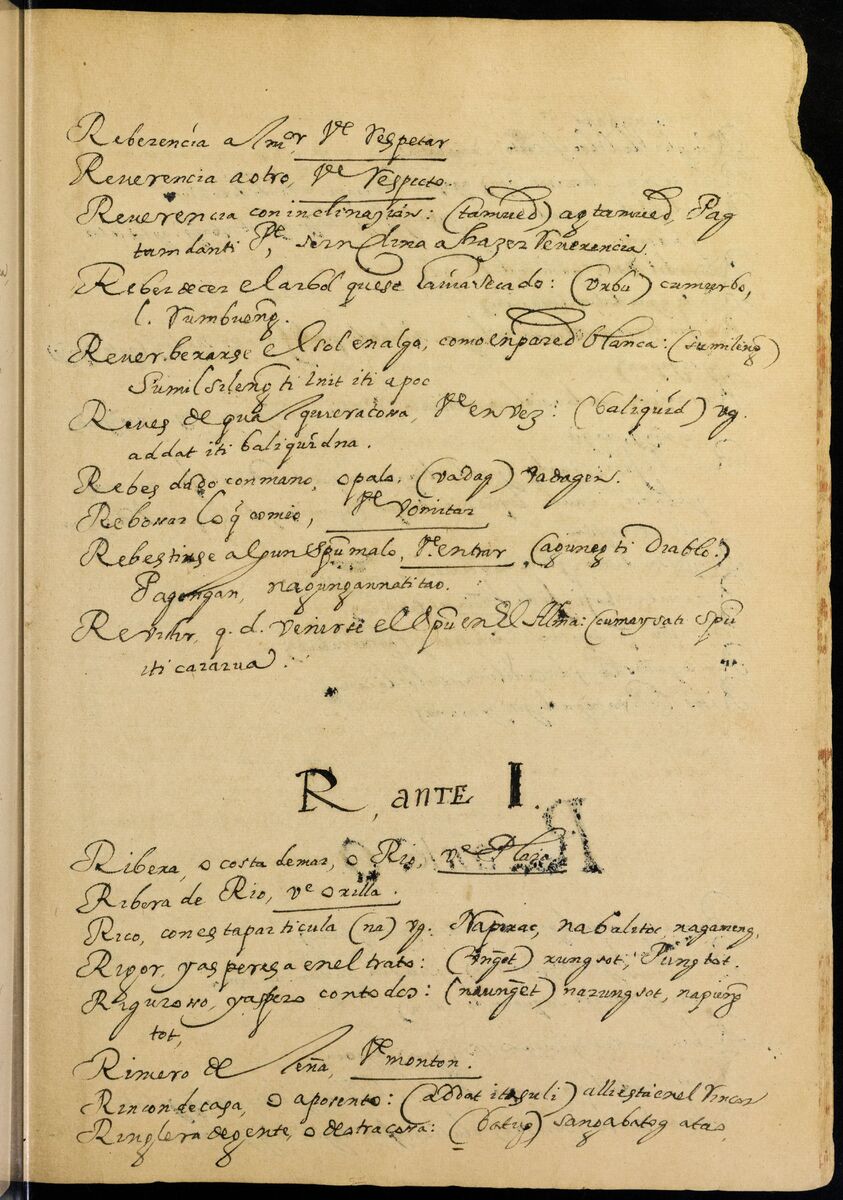 Reberencia a Sr mor, Ve Respetar
Reuerencia a otro, Ve Respecto.
Reuerencia con inclinasion: (tamued) ag tamued, Pag
tamdanti Pe, se inclina a hazer Reuerencia.
Reberdecer el arbol que se ha secado: (vrbu) cumurbo,
l. Rumbueng.
Reuerberarse el sol en algo, como en pared blanca: (sumileng)
Sumilsileng ti init iti apoc
Reues de qualquiera cosa, Ve enves: (baliquid) vg.
addat iti baliquidna.
Rebes dado con mano, o palo, (vadag) vadagen.
Rebosar lo q̃ comio, Ve Vomitar
Rebestirse algun espũ malo, Ve entrar (aguneg ti Diablo.)
Pagungan, nagungannatitao.
Reviuir, q. d. venirse el espũ en el Alma: (cumaysati spũ
iti cararua).
R, ANTE I.
Ribera, o costa de mar, o Rio, ve Plaia
Ribera de Rio, ve orilla.
Rico, con esta particula (na) vg. Napirac, nabalitoc, nagameng,
Rigor, y aspereza en el trato: (vnget) rungsot, Pungtot.
Riguroso, y aspero con todos: (naunget) narungsot, napung
tot,
Rimero de leña, Ve monton.
Rincon de casa, o aposento: (addat itisuli) alli esta en el Rincon
Ringlera de gente, o de otra cosa: (batug) sangabatog a tao,